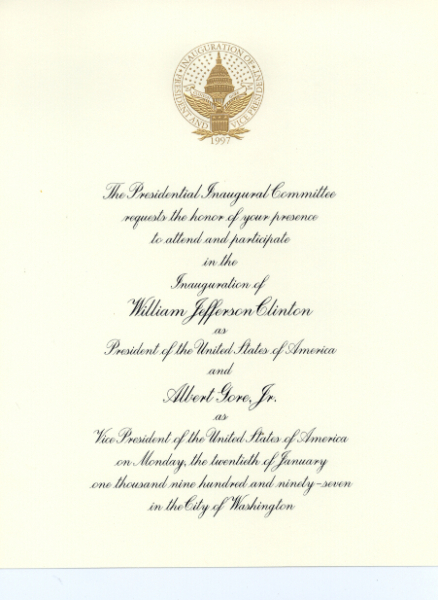 INAUGURATION OF
PRESIDENT AND
VICE PRESIDENT
1997
The Presidential Inaugural Committee
requests the honor of your presence
to attend and participate
in the
Inauguration of
William Jefferson Clinton
as
President of the United States of America
and
Albert Gore, Jr.
as
Vice President of the United States of America
on Monday, the twentieth of January
one thousand nine hundred and ninety-seven
in the City of Washington